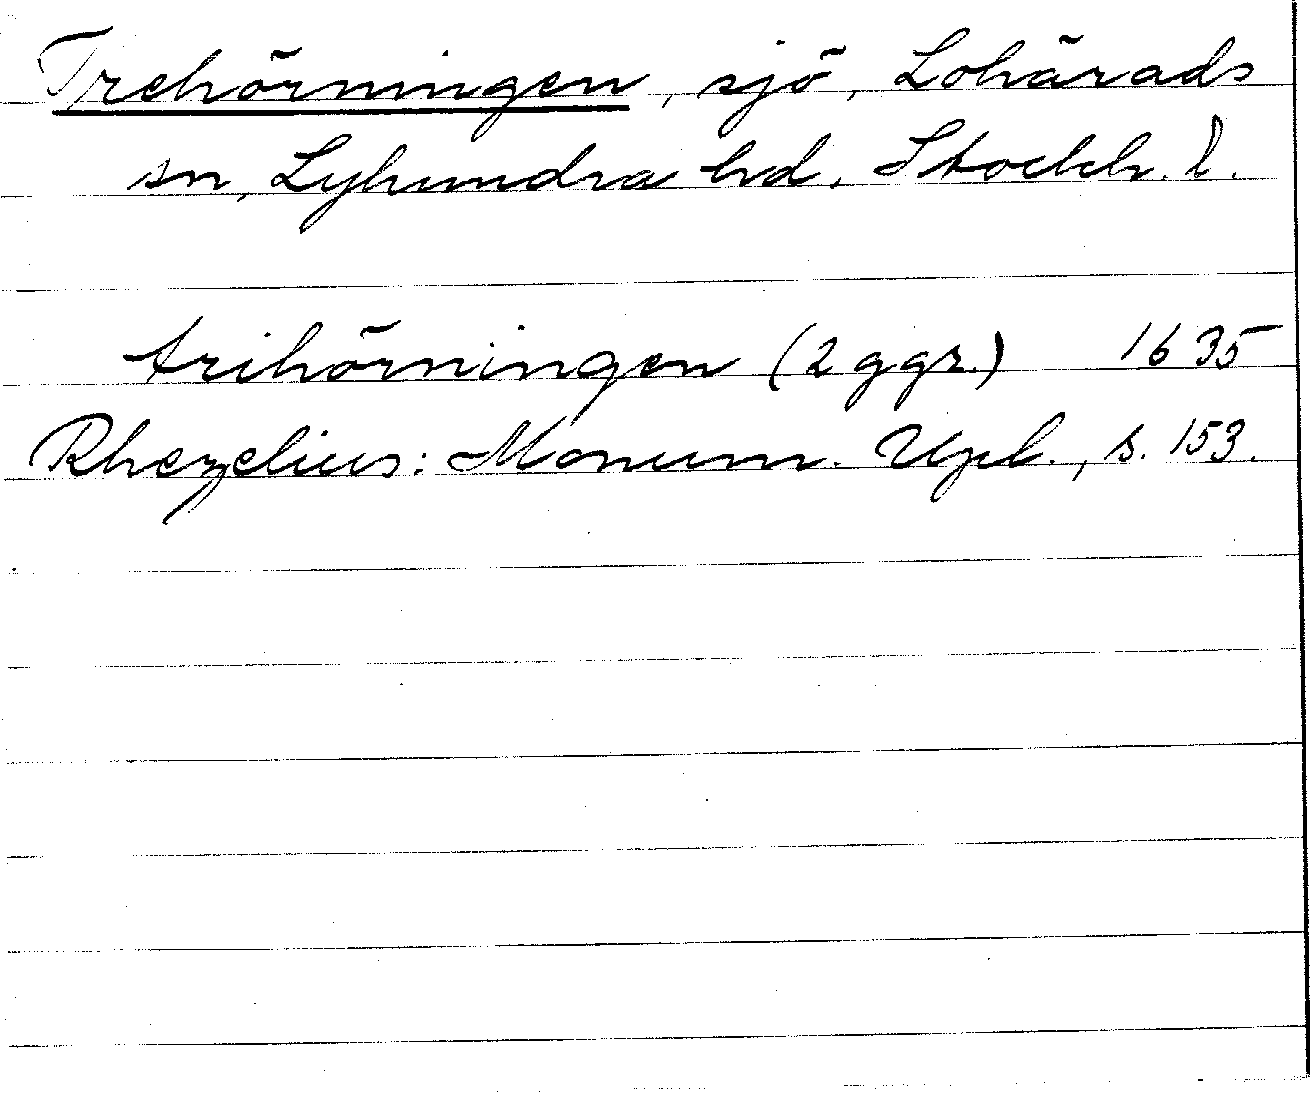 Trehörningen, sjö, Lohärads
sn, Lyhundra hd, Stockh. l.
trihörningen (2 ggr.) 1635
Rhezelius: Monum. Upl., s. 153.